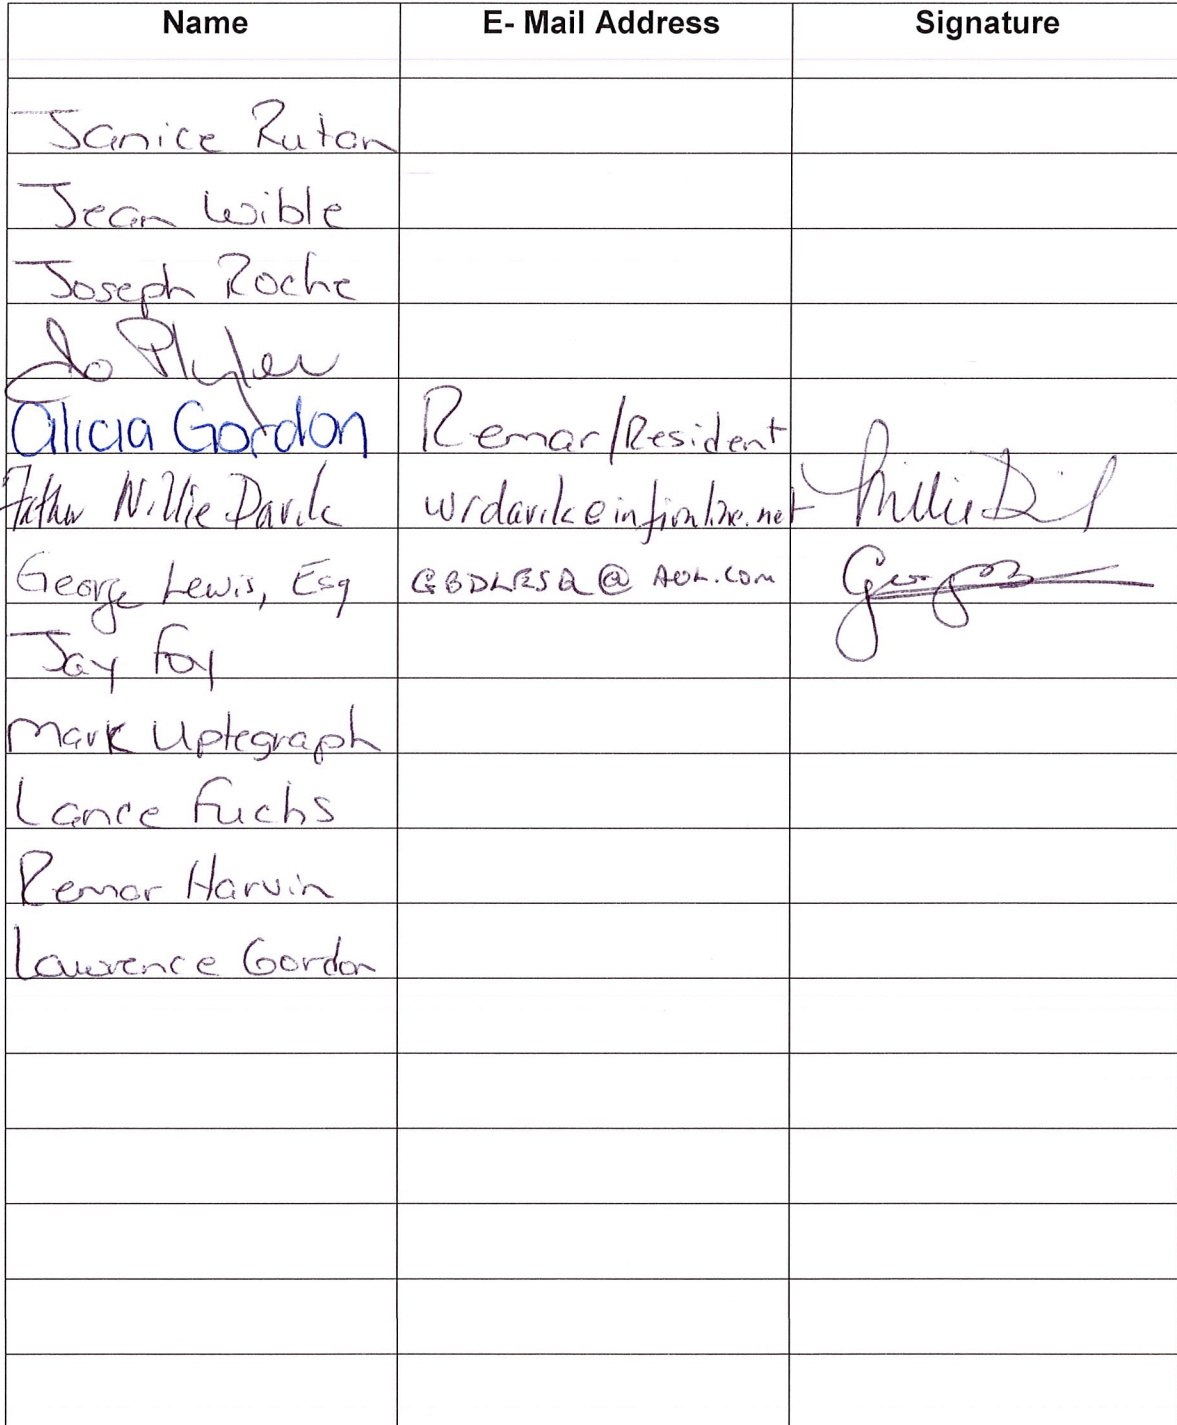 Name E- Mail Address Signature
Janice Rutan
Jean Wible
Joseph Roche
Jo Plyler
Alicia Gordon Remar/Resident
Father Willie Davila
George Lewis, Esq GBDLESQ @ AOL.COM
Jay Foy
Mark Uptegraph
Lance Fuchs
Remar Harvin
Lawrence Gordon